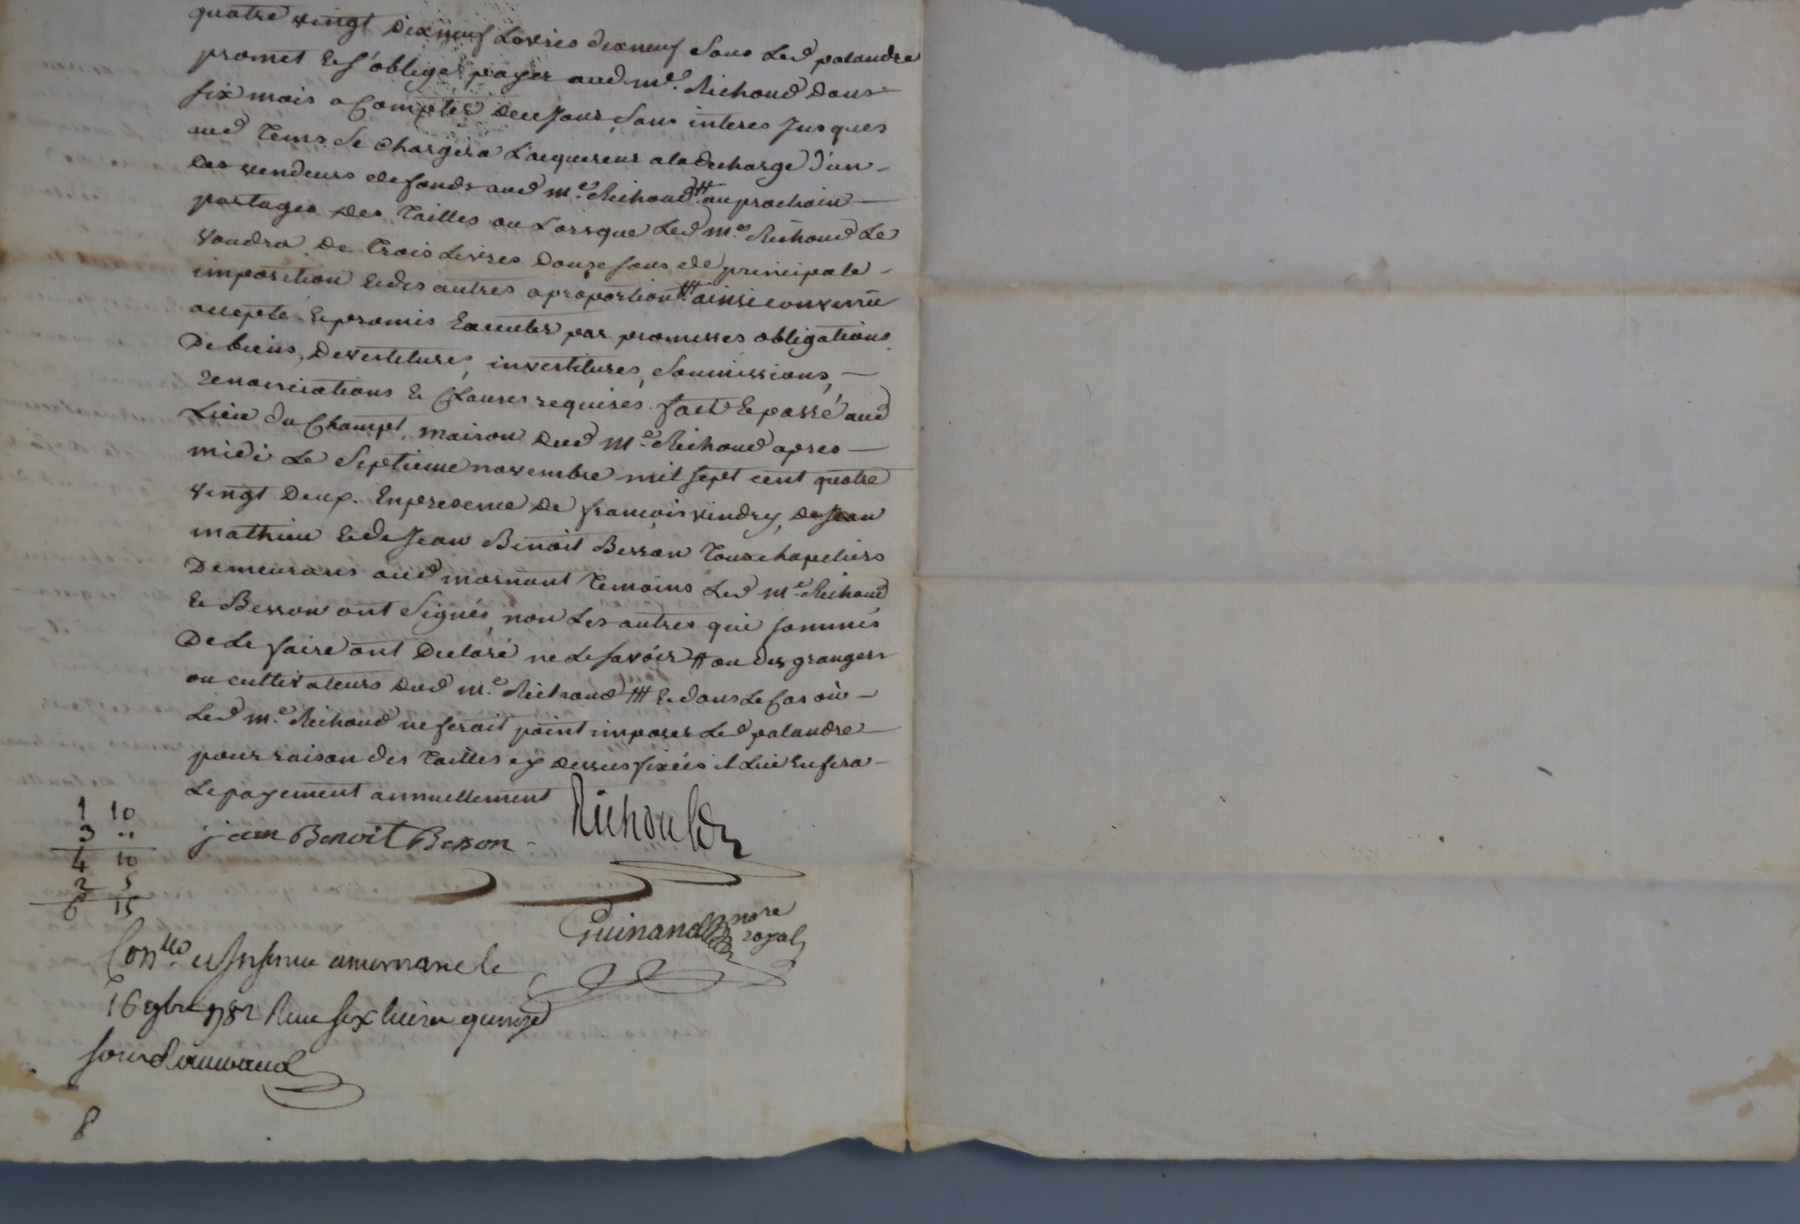 quatre vingt dixneuf Livres dixneuf sous Led palandre
promet & s'oblige payer aud me. Richoud dans
six mois a Compter de ce Jour, sans interes Jusques
aud tems. Se chargera L'acquereur a la decharge d'un
des vendeurs de fonds aud me. Richoud # au prochain
partages des Tailles ou Lorsque Led me. Richoud Le
voudra, de trois Livres douze sous de principale
imposition & des autres a proportion ## ainsi convenu
accepté & promis Executer par promesses obligations
De biens, devestitures, investitures, soumissions,
renonciations & Clauses requises. fait & passé aud
Lieu du Champt, maison dud Me. Richoud apres
midi Le Septieme novembre mil sept cent quatre
vingt deux. En presence de françois vindry, de Jean
mathieu & de Jean Benoit Besson tous chapeliers
Demeurans aud mornant temoins Led Me. Richoud
& Besson ont signés, non Les autres qui sommés
De Le faire ont declaré ne le savoir # ou des grangers
ou cultivateurs dud me. Richoud ## & dans Le Cas où
Led me. Richoud ne ferait point imposer Led palandre
pour raison des tailles cy dessus fixées il Lui en fera
Le payement annuellement
1 10
3 ..
4 10
2 5
6 15
jean Benoit Besson
Richoud
Guinand nore
royal
Conlle et Insinué a mornant le
16 9bre 1782 Recu six livres quinze
sous
8